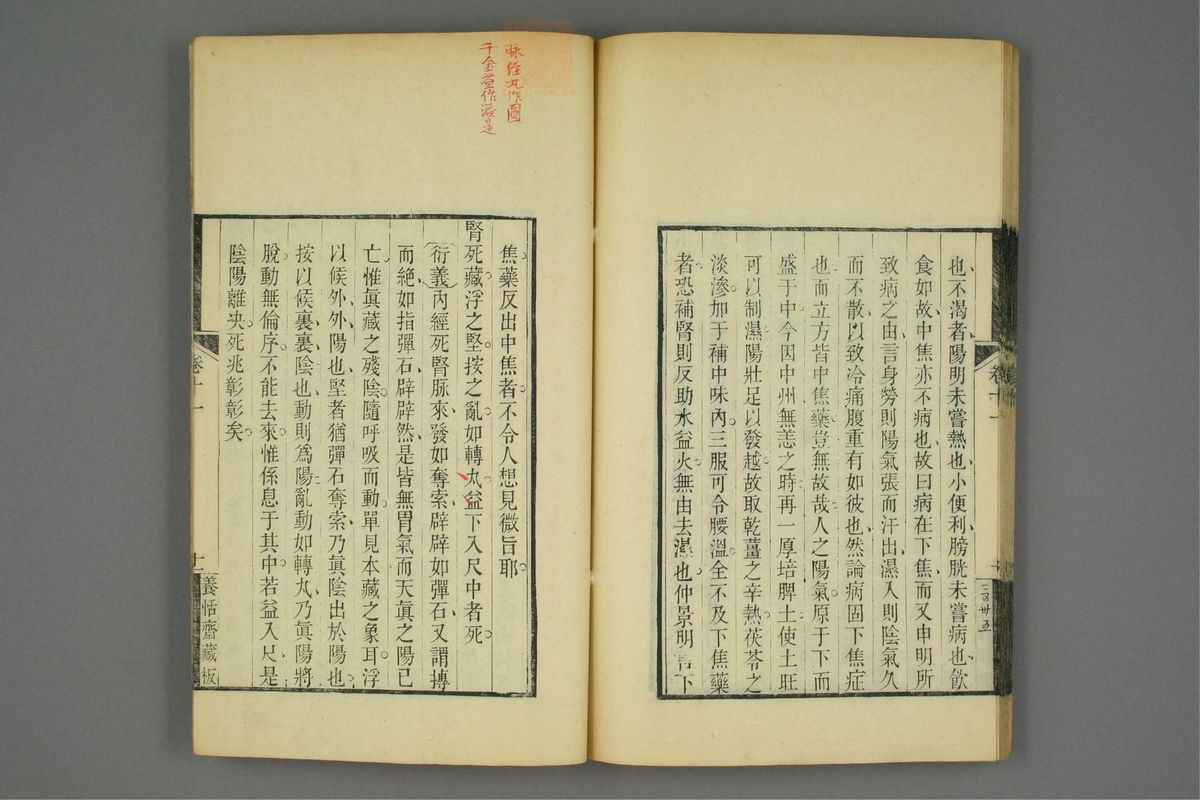 也不渴者陽明未嘗熱也小便利膀胱未嘗病也飲
食如故中焦亦不病也故曰病在下焦而又申明所
致病之由言身勞則陽氣張而汗出濕入則陰氣久
而不散以致冷痛腹重有如彼也然論病固下焦症
也而立方皆中焦藥豈無故哉人之陽氣原于下而
盛于中今因中州無恙之時再一厚培脾土使土旺
可以制濕陽壯足以發越故取乾薑之辛熱茯苓之
淡滲加于補中味內三服可令腰溫全不及下焦藥
者恐補腎則反助水益火無由去濕也仲景明言下
卷十一
焦藥反出中焦者不令人想見微旨耶
腎死藏浮之堅按之亂如轉丸益下入尺中者死
(衍義)內經死腎脉來發如奪索辟辟如彈石又謂摶
而絕如指彈石辟辟然是皆無胃氣而天眞之陽已
亡惟眞藏之殘陰隨呼吸而動單見本藏之象耳浮
以候外外陽也堅者猶彈石奪索乃眞陰出於陽也
按以候裏裏陰也動則爲陽亂動如轉丸乃眞陽將
脫動無倫序不能去來惟係息于其中若益入尺是
陰陽離央死兆彰彰矣
卷十一
十一
養恬齋藏板
脉經丸作圓
千金益作溢是